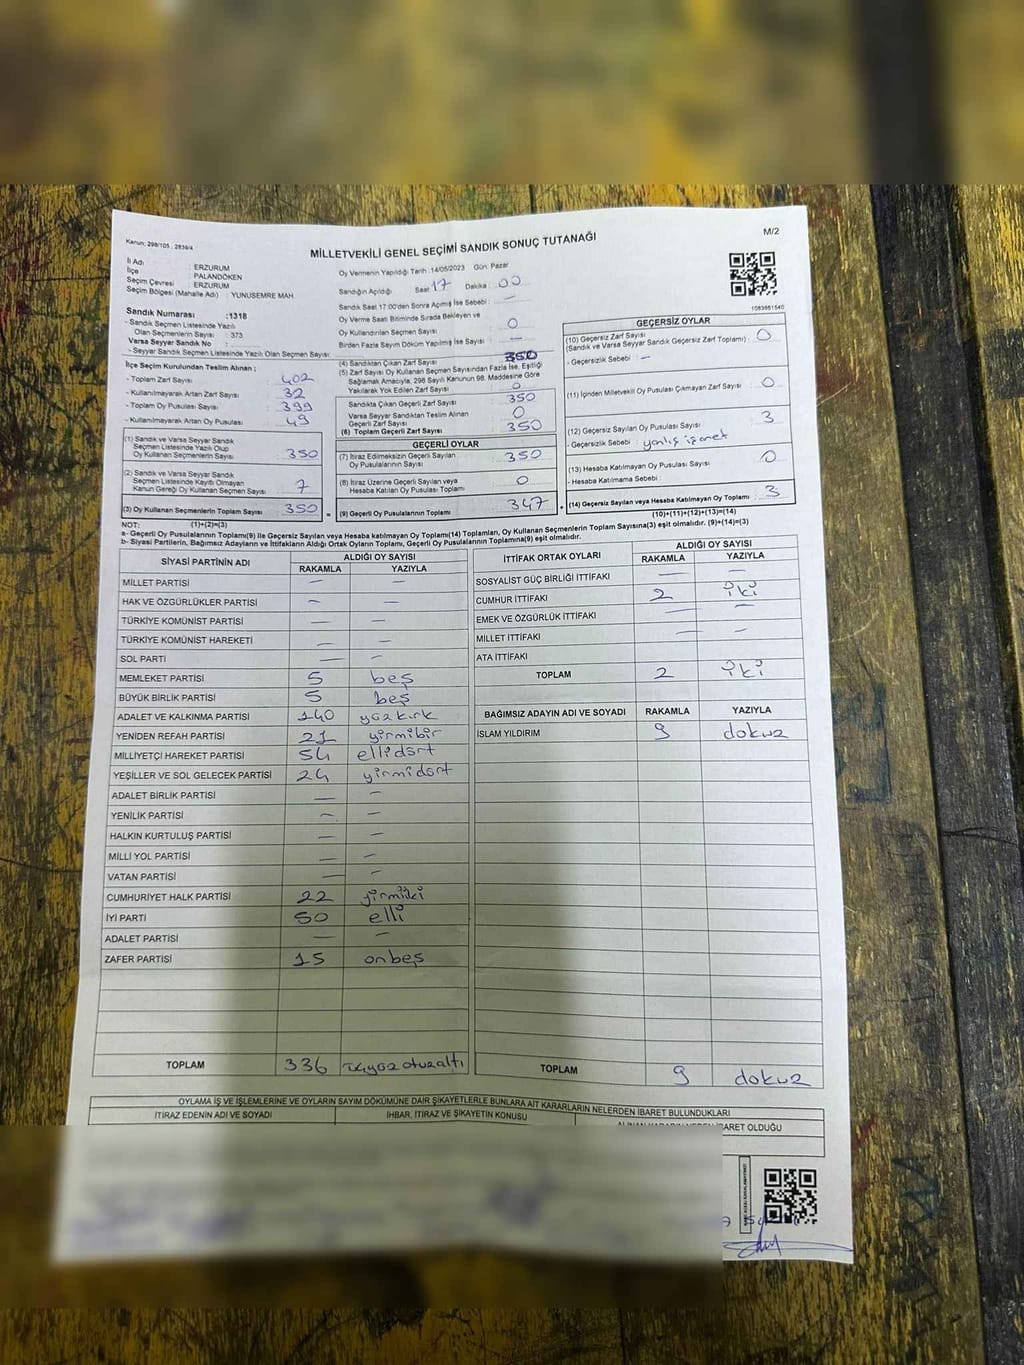 Kanun; 298/105 ; 2839/4
M/2
MİLLETVEKİLİ GENEL SEÇİMİ SANDIK SONUÇ TUTANAĞI
İl Adı : ERZURUM
İlçe : PALANDÖKEN
Seçim Çevresi : ERZURUM
Seçim Bölgesi (Mahalle Adı) : YUNUSEMRE MAH.
Sandık Numarası :1318
- Sandık Seçmen Listesinde Yazılı
Olan Seçmenlerin Sayısı : 373
Varsa Seyyar Sandık No :
- Seyyar Sandık Seçmen Listesinde Yazılı Olan Seçmen Sayısı:
İlçe Seçim Kurulundan Teslim Alınan ;
- Toplam Zarf Sayısı : 402
- Kullanılmayarak Artan Zarf Sayısı : 32
- Toplam Oy Pusulası Sayısı : 399
- Kullanılmayarak Artan Oy Pusulası : 49
(1) Sandık ve Varsa Seyyar Sandık
Seçmen Listesinde Yazılı Olup
Oy Kullanan Seçmenlerin Sayısı : 350
(2) Sandık ve Varsa Seyyar Sandık
Seçmen Listesinde Kayıtlı Olmayan
Kanun Gereği Oy Kullanan Seçmen Sayısı : 7
(3) Oy Kullanan Seçmenlerin Toplam Sayısı : 350
Oy Vermenin Yapıldığı Tarih :14/05/2023 Gün: Pazar
Sandığın Açıldığı Saat 17 Dakika : 00
Sandık Saat 17:00'den Sonra Açılmış İse Sebebi : —
Oy Verme Saati Bitiminde Sırada Bekleyen ve
Oy Kullandırılan Seçmen Sayısı : 0
Birden Fazla Sayım Döküm Yapılmış İse Sayısı : —
(4) Sandıktan Çıkan Zarf Sayısı : 350
(5) Zarf Sayısı Oy Kullanan Seçmen Sayısından Fazla İse, Eşitliği
Sağlamak Amacıyla, 298 Sayılı Kanunun 98. Maddesine Göre
Yakılarak Yok Edilen Zarf Sayısı : 0
Sandıkta Çıkan Geçerli Zarf Sayısı : 350
Varsa Seyyar Sandıktan Teslim Alınan
Geçerli Zarf Sayısı : 0
(6) Toplam Geçerli Zarf Sayısı : 350
GEÇERLİ OYLAR
(7) İtiraz Edilmeksizin Geçerli Sayılan
Oy Pusulalarının Sayısı : 350
(8) İtiraz Üzerine Geçerli Sayılan veya
Hesaba Katılan Oy Pusulası Toplamı : 0
= (9) Geçerli Oy Pusulalarının Toplamı : 347
1083661540
GEÇERSİZ OYLAR
(10) Geçersiz Zarf Sayısı
(Sandık ve Varsa Seyyar Sandık Geçersiz Zarf Toplamı) : 0
- Geçersizlik Sebebi : —
(11) İçinden Milletvekili Oy Pusulası Çıkmayan Zarf Sayısı : 0
(12) Geçersiz Sayılan Oy Pusulası Sayısı : 3
- Geçersizlik Sebebi : yanlış işaret
(13) Hesaba Katılmayan Oy Pusulası Sayısı : 0
- Hesaba Katılmama Sebebi :
+ (14) Geçersiz Sayılan veya Hesaba Katılmayan Oy Toplamı : 3
NOT: (1)+(2)=(3) (10)+(11)+(12)+(13)=(14)
a- Geçerli Oy Pusulalarının Toplamı(9) ile Geçersiz Sayılan veya Hesaba katılmayan Oy Toplamı(14) Toplamları, Oy Kullanan Seçmenlerin Toplam Sayısına(3) eşit olmalıdır. (9)+(14)=(3)
b- Siyasi Partilerin, Bağımsız Adayların ve İttifakların Aldığı Ortak Oyların Toplamı, Geçerli Oy Pusulalarının Toplamına(9) eşit olmalıdır.
SİYASİ PARTİNİN ADI ALDIĞI OY SAYISI
RAKAMLA YAZIYLA
MİLLET PARTİSİ — —
HAK VE ÖZGÜRLÜKLER PARTİSİ — —
TÜRKİYE KOMÜNİST PARTİSİ — —
TÜRKİYE KOMÜNİST HAREKETİ — —
SOL PARTİ — —
MEMLEKET PARTİSİ 5 beş
BÜYÜK BİRLİK PARTİSİ 5 beş
ADALET VE KALKINMA PARTİSİ 140 yüzkırk
YENİDEN REFAH PARTİSİ 21 yirmibir
MİLLİYETÇİ HAREKET PARTİSİ 54 ellidört
YEŞİLLER VE SOL GELECEK PARTİSİ 24 yirmidört
ADALET BİRLİK PARTİSİ — —
YENİLİK PARTİSİ — —
HALKIN KURTULUŞ PARTİSİ — —
MİLLİ YOL PARTİSİ — —
VATAN PARTİSİ — —
CUMHURİYET HALK PARTİSİ 22 yirmiiki
İYİ PARTİ 50 elli
ADALET PARTİSİ — —
ZAFER PARTİSİ 15 onbeş
TOPLAM 336 üçyüzotuzaltı
İTTİFAK ORTAK OYLARI ALDIĞI OY SAYISI
RAKAMLA YAZIYLA
SOSYALİST GÜÇ BİRLİĞİ İTTİFAKI — —
CUMHUR İTTİFAKI 2 iki
EMEK VE ÖZGÜRLÜK İTTİFAKI — —
MİLLET İTTİFAKI — —
ATA İTTİFAKI
TOPLAM 2 iki
BAĞIMSIZ ADAYIN ADI VE SOYADI RAKAMLA YAZIYLA
İSLAM YILDIRIM 9 dokuz
TOPLAM 9 dokuz
OYLAMA İŞ VE İŞLEMLERİNE VE OYLARIN SAYIM DÖKÜMÜNE DAİR ŞİKAYETLERLE BUNLARA AİT KARARLARIN NELERDEN İBARET BULUNDUKLARI
İTİRAZ EDENİN ADI VE SOYADI İHBAR, İTİRAZ VE ŞİKAYETİN KONUSU ALINAN KARARIN NEDEN İBARET OLDUĞU